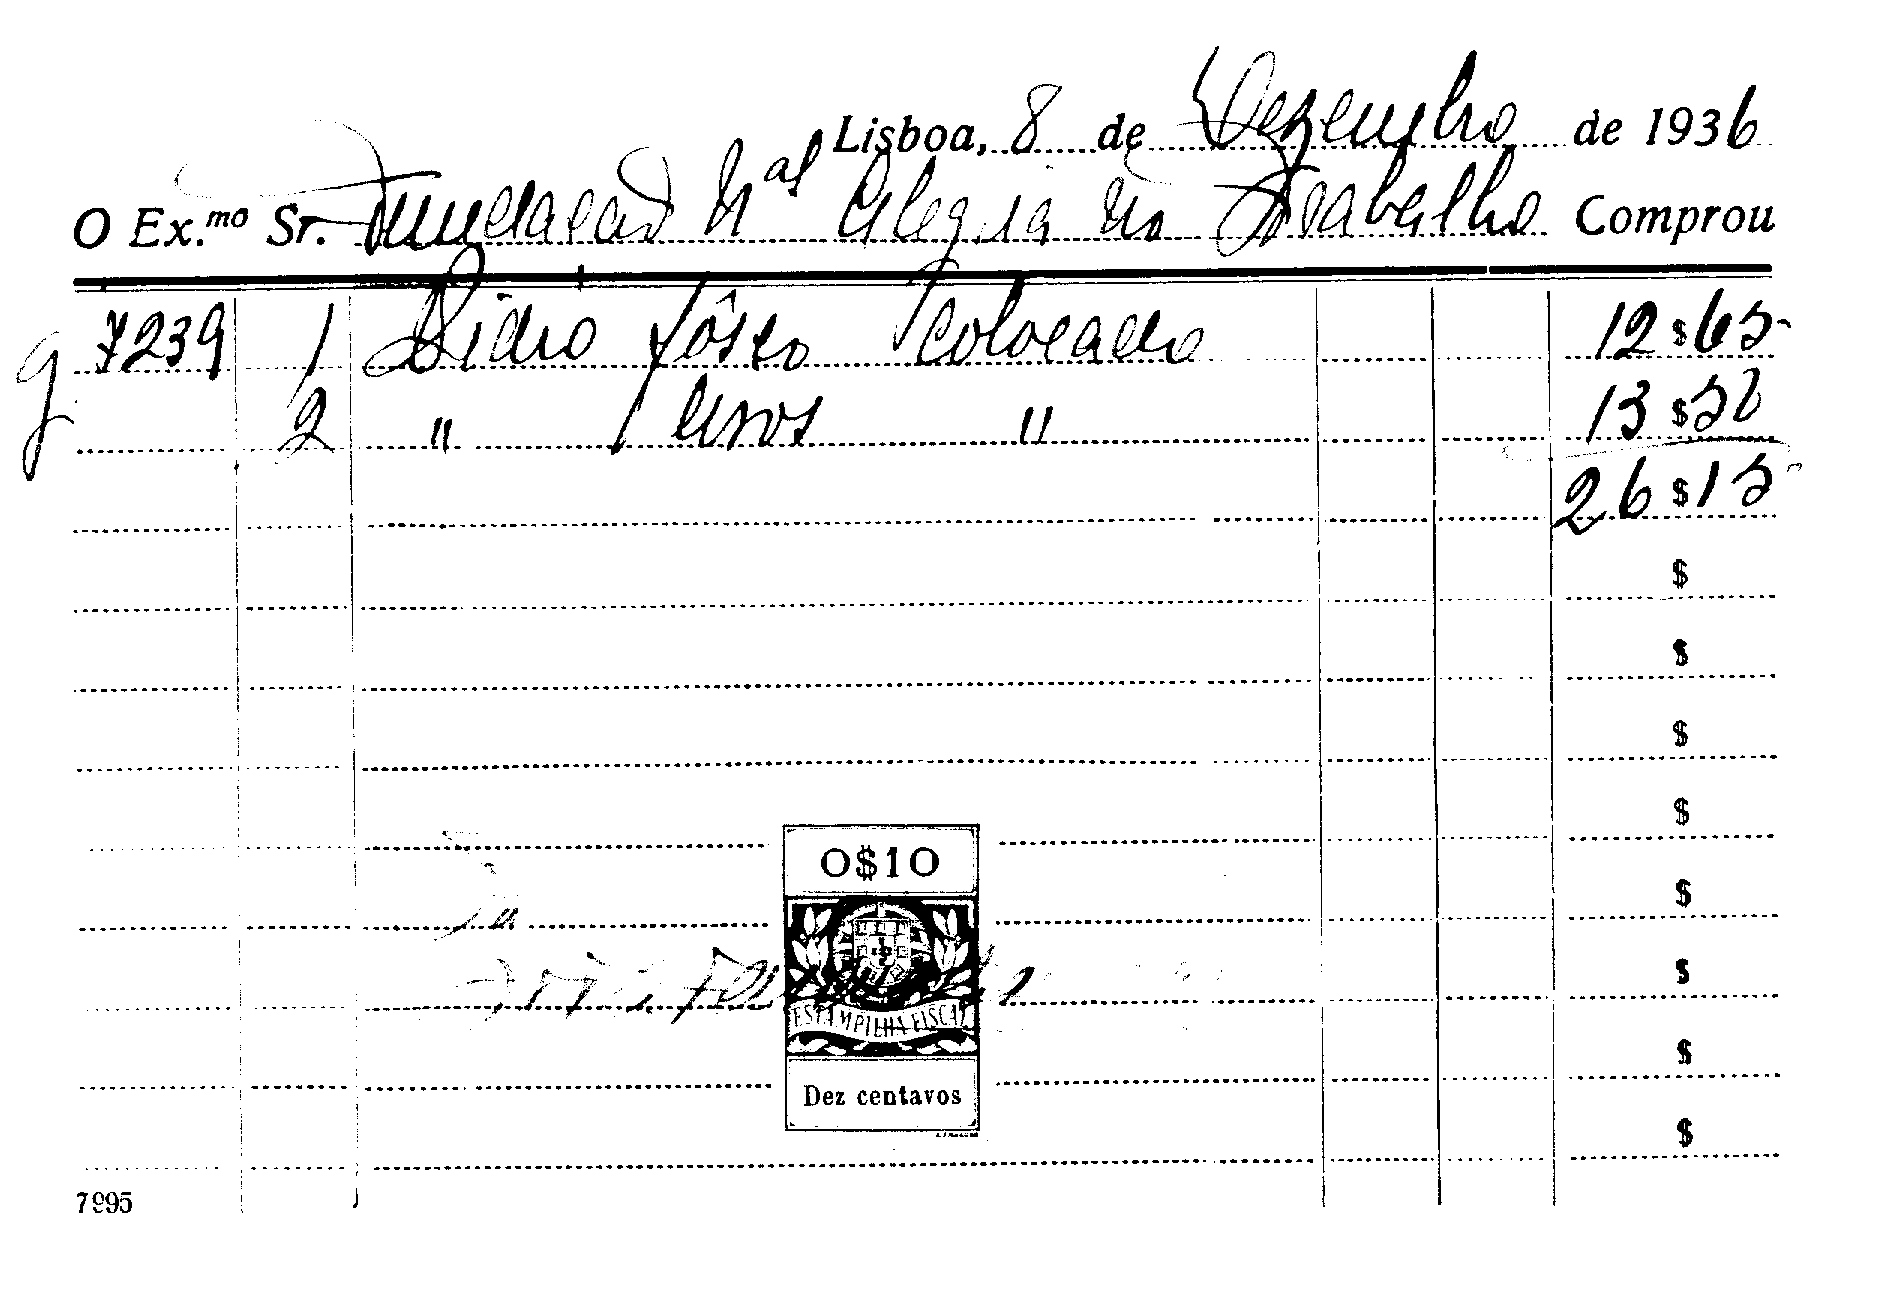 Lisboa, 8 de Dezembro de 1936
O Ex.mo Sr. Fundação Nal Alegria no Trabalho Comprou
7239 1 Vidro fôsco colocado 12$65
2 " lisos " 13$50
26$15
$
$
$
$
$
$
$
$
0$10
ESTAMPILHA FISCAL
Dez centavos
7995